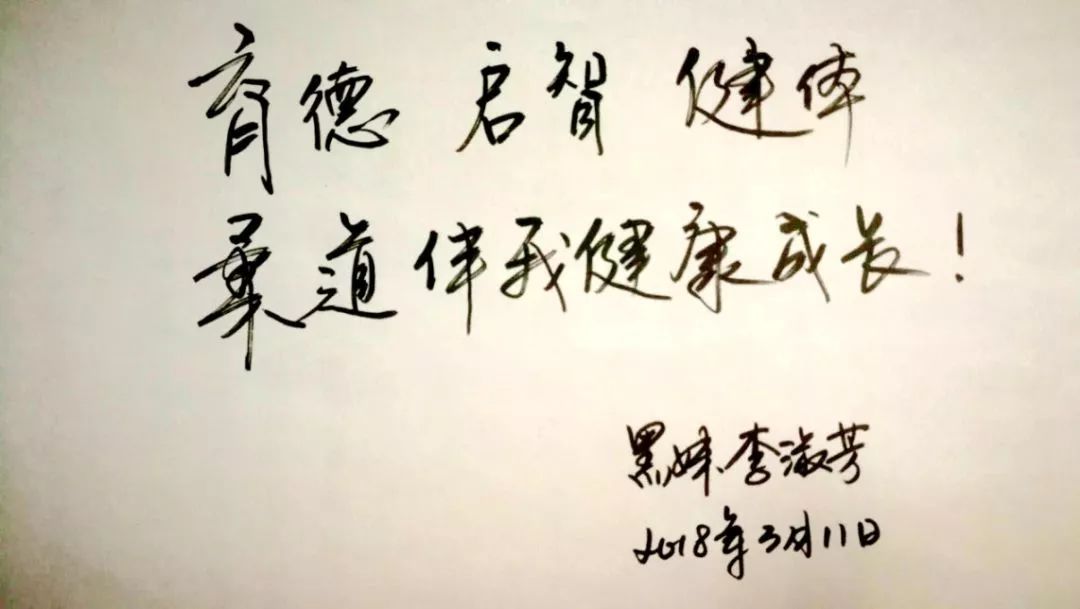 育德 启智 健体
柔道伴我健康成长!
黑妹李淑芳
2018年3月11日